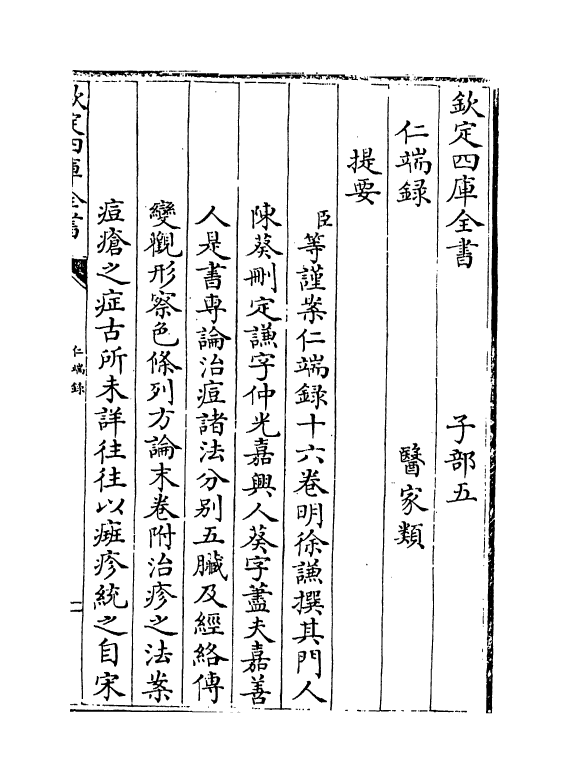 欽定四庫全書　子部五
仁端錄　醫家類
提要
臣等謹案仁端錄十六卷明徐謙撰其門人
陳葵刪定謙字仲光嘉興人葵字藎夫嘉善
人是書專論治痘諸法分别五臟及經絡傳
變觀形察色條列方論末卷附治疹之法案
痘瘡之症古所未詳往往以癍疹統之自宋
欽定四庫全書
仁端錄
一